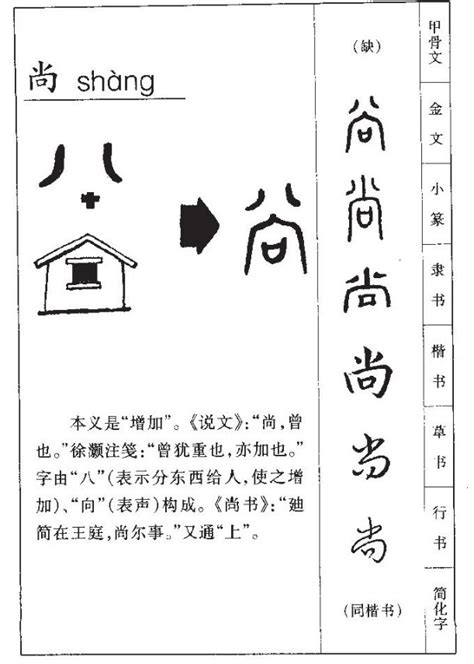 尚 shàng
本义是“增加”。《说文》：“尚，曾
也。”徐灏注笺：“曾犹重也，亦加也。”
字由“八”（表示分东西给人，使之增
加）、“向”（表声）构成。《尚书》：“迪
简在王庭，尚尔事。”又通“上”。
（缺）
尚
尚
尚
尚
尚
尚
（同楷书）
甲骨文
金文
小篆
隶书
楷书
草书
行书
简化字